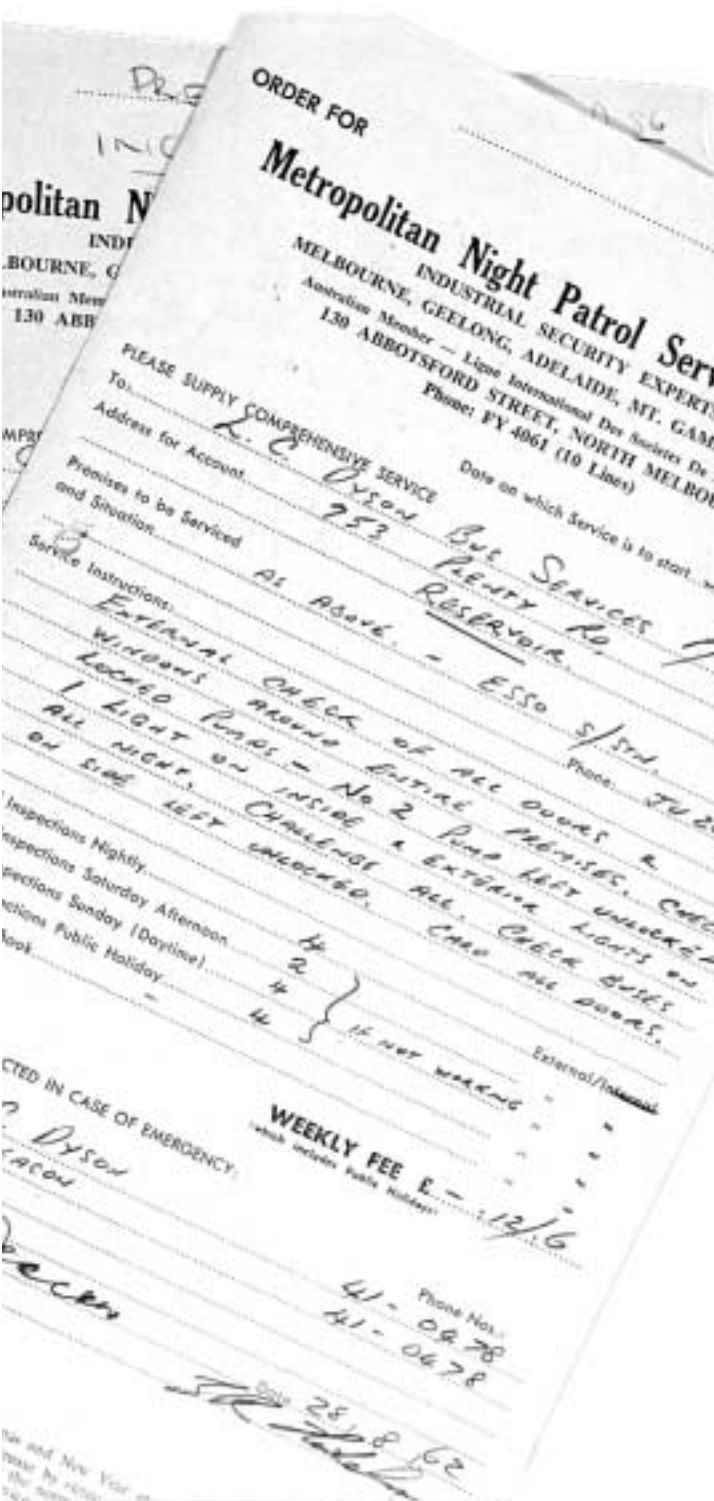 DR.
INIC
politan N
INDU
LBOURNE, G
Australian Mem
130 ABB
ORDER FOR
A 56
Metropolitan Night Patrol Serv
INDUSTRIAL SECURITY EXPERTS
MELBOURNE, GEELONG, ADELAIDE, MT. GAM
Australian Member — Ligue International Des Societes De
130 ABBOTSFORD STREET, NORTH MELBOU
Phone: FY 4061 (10 Lines)
PLEASE SUPPLY COMPREHENSIVE SERVICE
Date on which Service is to start
To: L. C. DYSON BUS SERVICES
Address for Account 953 PLENTY RD,
RESERVOIR
Premises to be Serviced
and Situation AS ABOVE. - ESSO S/STN.
Phone JU 20
Service Instructions:
EXTERNAL CHECK OF ALL DOORS &
WINDOWS AROUND ENTIRE PREMISES. CHECK
LOCKED PUMPS - NO 2 PUMP LEFT UNLOCKED
1 LIGHT ON INSIDE & EXTERIOR LIGHTS ON
ALL NIGHT. CHALLENGE ALL. CHECK BUSES
ON SIDE LEFT UNLOCKED. CARD ALL DOORS.
Inspections Nightly 4 External/Internal
nspections Saturday Afternoon 2 " "
pections Sunday (Daytime) 4 " "
ections Public Holiday 4 " "
Book -
IF NOT WORKING
WEEKLY FEE £ - : 12/6
"which includes Public Holidays"
CTED IN CASE OF EMERGENCY:
C DYSON
Phone Nos.:
41-0478
41-0478
Date 28.8.62